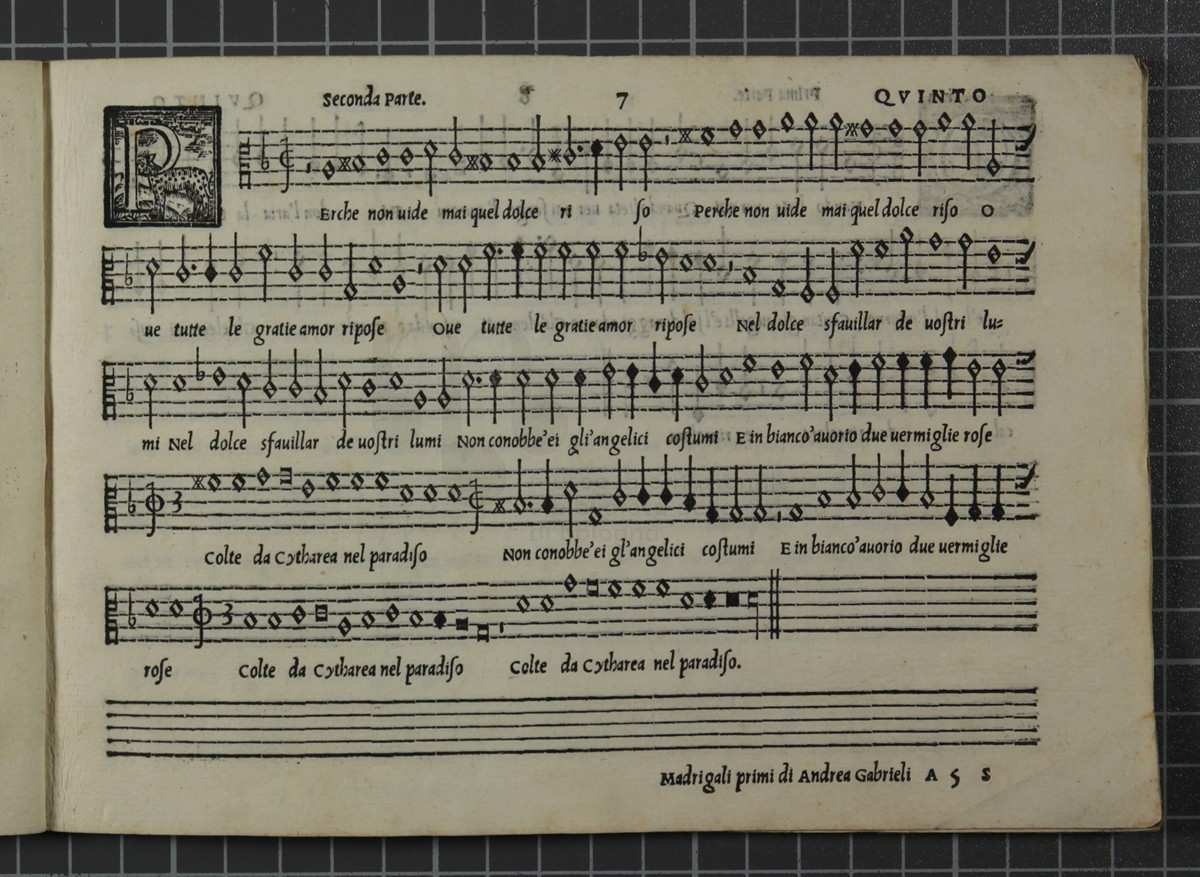 Seconda Parte. 7 QVINTO
P
Erche non uide mai quel dolce ri ſo Perche non uide mai quel dolce riſo O
ue tutte le gratie amor ripoſe Oue tutte le gratie amor ripoſe Nel dolce sfauillar de uoſtri lu=
mi Nel dolce sfauillar de uoſtri lumi Non conobbe'ei gli'angelici coſtumi E in bianco'auorio due uermiglie roſe
3
Colte da Cytharea nel paradiſo Non conobbe'ei gl'angelici coſtumi E in bianco'auorio due uermiglie
3
roſe Colte da Cytharea nel paradiſo Colte da Cytharea nel paradiſo.
Madrigali primi di Andrea Gabrieli A 5 S